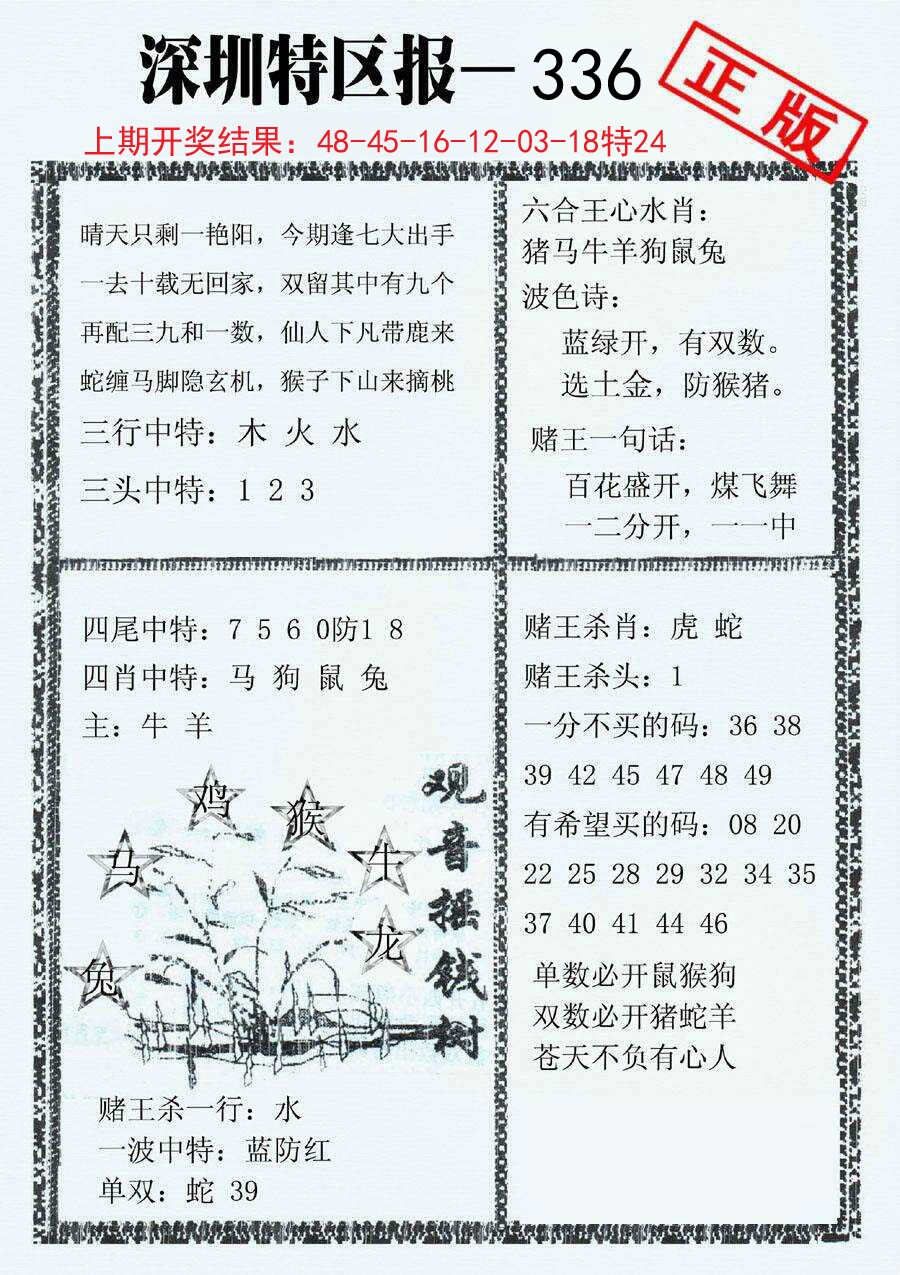 深圳特区报—336
正版
上期开奖结果：48-45-16-12-03-18特24
晴天只剩一艳阳，今期逢七大出手
一去十载无回家，双留其中有九个
再配三九和一数，仙人下凡带鹿来
蛇缠马脚隐玄机，猴子下山来摘桃
三行中特：木 火 水
三头中特：1 2 3
六合王心水肖：
猪马牛羊狗鼠兔
波色诗：
蓝绿开，有双数。
选土金，防猴猪。
赌王一句话：
百花盛开，煤飞舞
一二分开，一一中
四尾中特：7 5 6 0防1 8
四肖中特：马 狗 鼠 兔
主：牛 羊
鸡
猴
马
牛
龙
兔
观音摇钱树
赌王杀一行：水
一波中特：蓝防红
单双：蛇 39
赌王杀肖：虎 蛇
赌王杀头：1
一分不买的码：36 38
39 42 45 47 48 49
有希望买的码：08 20
22 25 28 29 32 34 35
37 40 41 44 46
单数必开鼠猴狗
双数必开猪蛇羊
苍天不负有心人